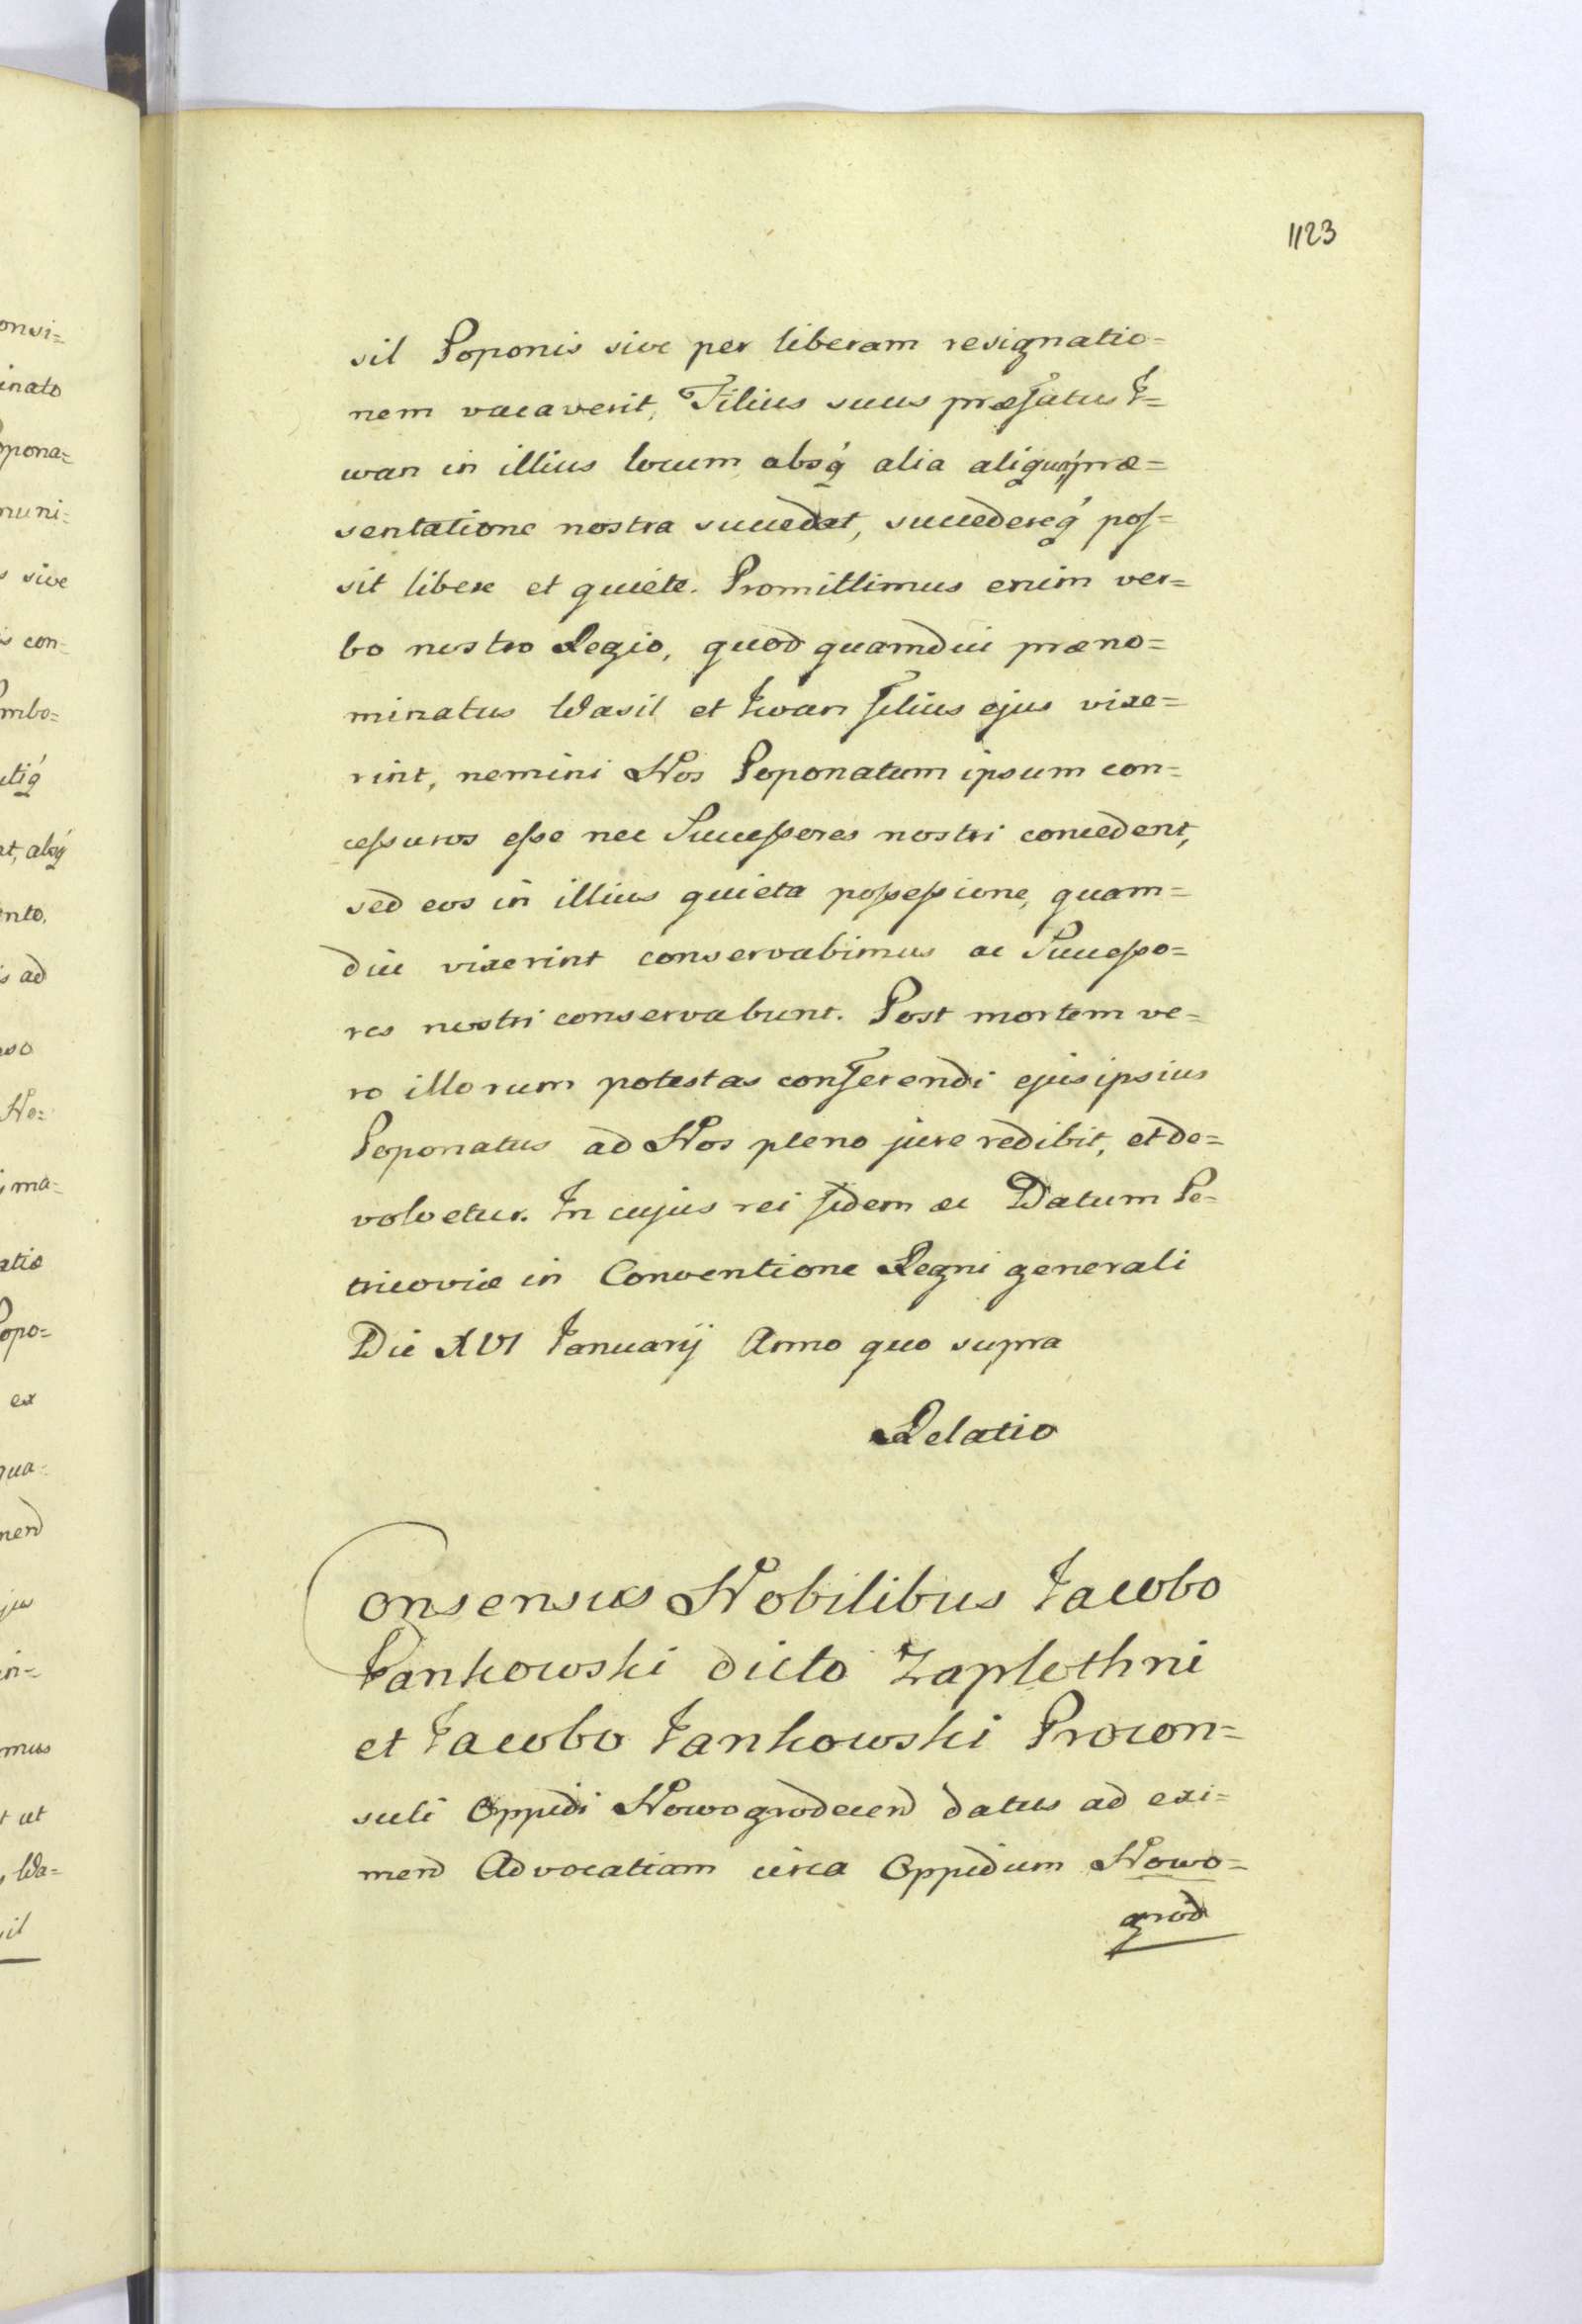 1123
sil Poponis sive per liberam resignatio=
nem vacaverit, Filius suus præfatus I=
wan in illius locum absq́ alia aliqua præ=
sentatione nostra succedat, succedereq́ pos=
sit libere et quiete. Promittimus enim ver=
bo nostro Regio, quod quamdiu præno=
minatus Wasil et Iwan filius ejus vixe=
rint, nemini Nos Poponatum ipsum con=
cessuros esse nec Successores nostri concedent,
sed eos in illius quieta possessione, quam=
diu vixerint conservabimus ac Successo=
res nostri conservabunt. Post mortem ve=
ro illorum potestas conferendi ejus ipsius
Poponatus ad Nos pleno jure redibit, et de=
volvetur. In cujus rei fidem ac Datum Pe=
tricoviæ in Conventione Regni generali
Die XVI Ianuarij Anno quo supra
Relatio
Consensus Nobilibus Iacobo
Iankowski dicto Zaplothni
et Iacobo Iankowski Procon=
suli Oppidi Nowogrodecen datus ad exi=
men Advocatiam circa Oppidum Nowo=
grod
onsi=
inato
opona=
muni=
s sive
is con=
ombo=
utiq́
nt, absq́
ento,
is ad
No=
ima=
atio
Popo=
ex
qua=
men
jus
in=
mus
t ut
, Wa=
sil